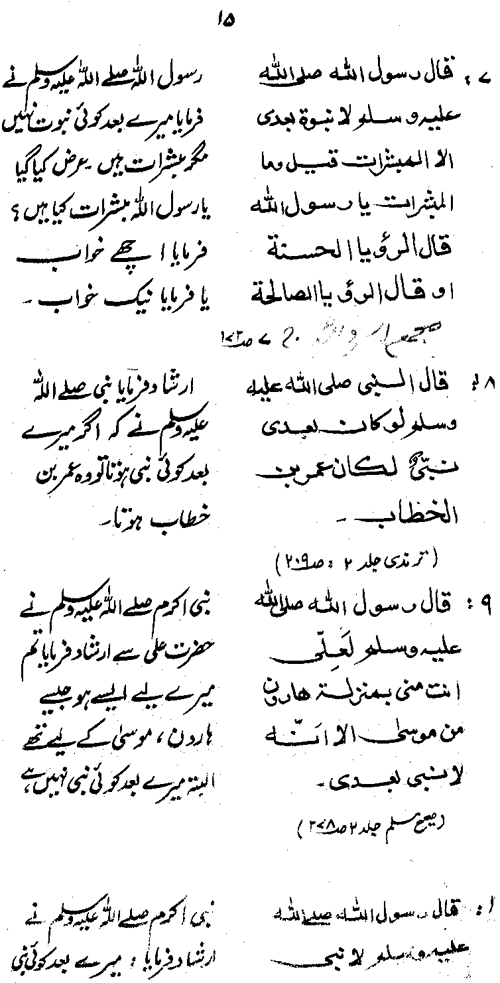 ۱۵
۷، قال رسول الله صلى الله
عليه وسلم لا نبوة بعدى
الا المبشرات قيل وما
المبشرات يا رسول الله
قال الرؤيا الحسنة
او قال الرؤيا الصالحة
رسول اللہ صلے اللہ علیہ وسلم نے
فرمایا میرے بعد کوئی نبوت نہیں
مگر مبشرات ہیں۔ عرض کیا گیا
یا رسول اللہ مبشرات کیا ہیں؟
فرمایا اچھے خواب
یا فرمایا نیک خواب ۔
۸: قال النبى صلى الله عليه
وسلم لو كان بعدى
نبىٌّ لكان عمر بن
الخطاب ۔
(ترمذی جلد ۲ : صـ۲۰۹)
ارشاد فرمایا نبی صلے اللہ
علیہ وسلم نے کہ اگر میرے
بعد کوئی نبی ہوتا تو وہ عمر بن
خطاب ہوتا۔
۹: قال رسول الله صلى الله
عليه وسلم لعَلِىّ
انت منى بمنزلة هارون
من موسى الا انّه
لا نبى بعدى ۔
(صحیح مسلم جلد ۲ صـ۲۷۸)
نبی اکرم صلے اللہ علیہ وسلم نے
حضرت علی سے ارشاد فرمایا تم
میرے لیے ایسے ہو جیسے
ہارون ، موسیٰ کے لیے تھے
البتہ میرے بعد کوئی نبی نہیں ہے
۱: قال رسول الله صلى الله
عليه وسلم لا نبى
نبی اکرم صلے اللہ علیہ وسلم نے
ارشاد فرمایا : میرے بعد کوئی نبی